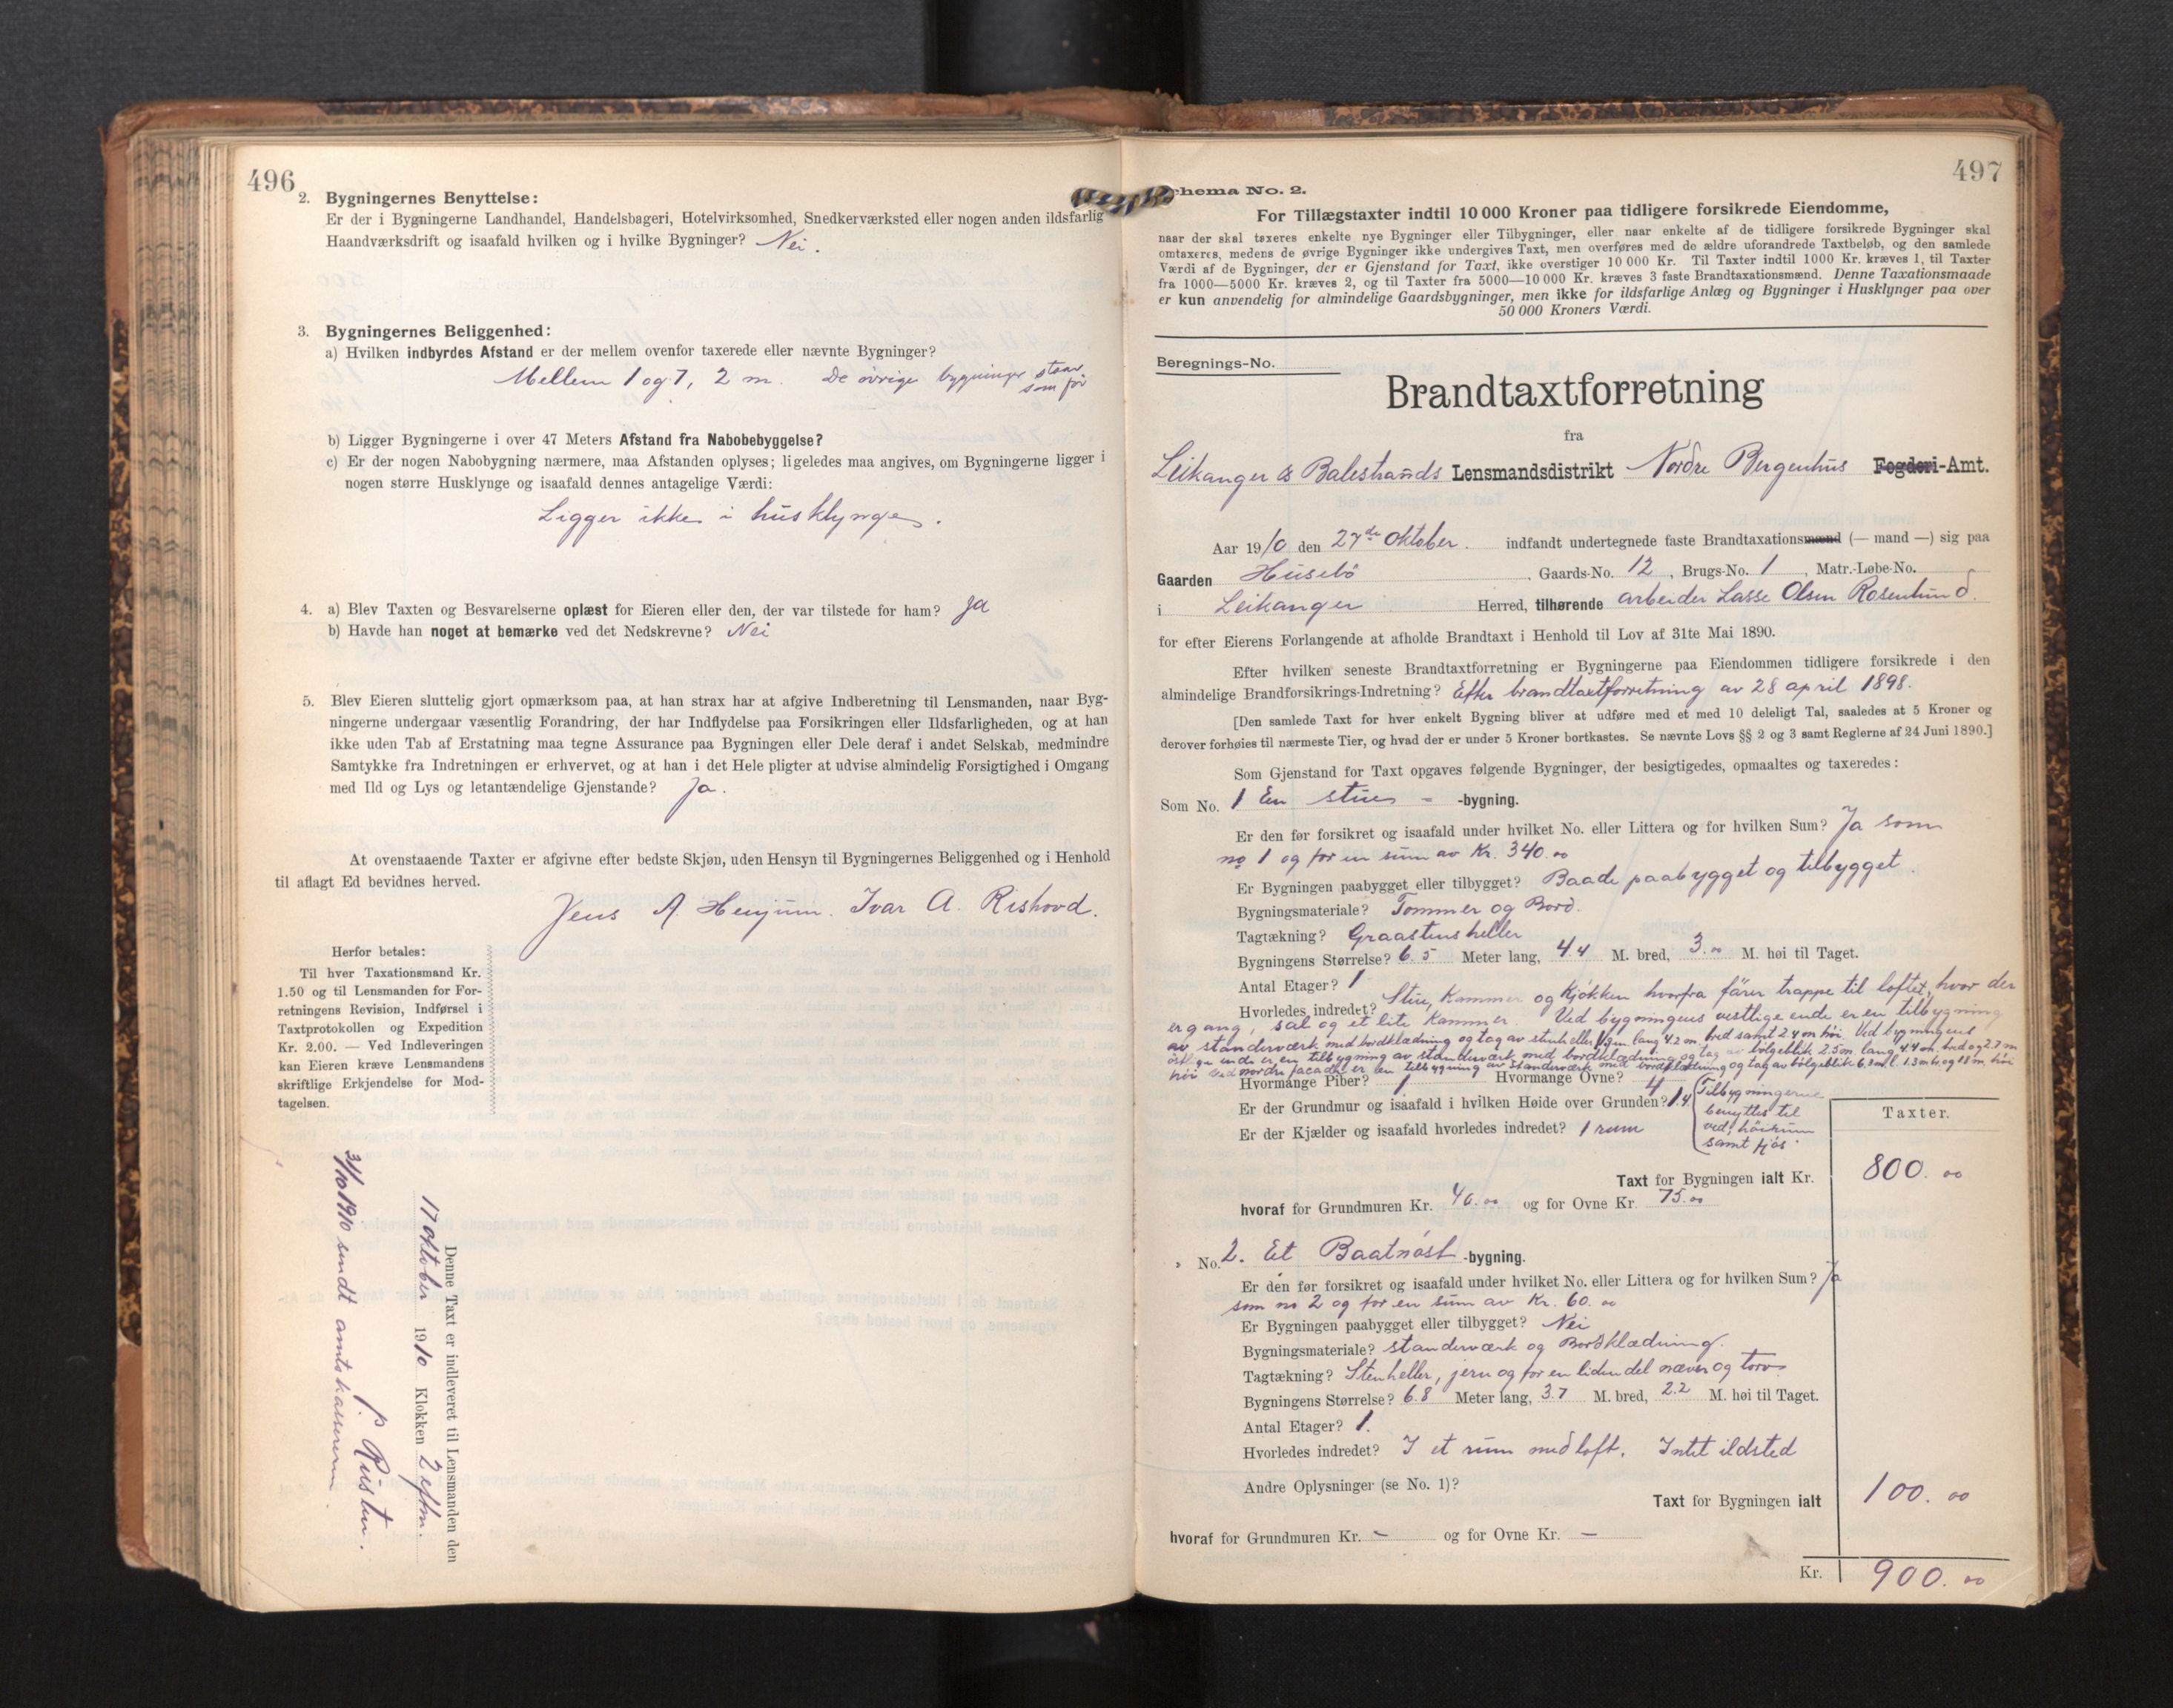 496
2. Bygningernes Benyttelse:
Er der i Bygningerne Landhandel, Handelsbageri, Hotelvirksomhed, Snedkerværksted eller nogen anden ildsfarlig
Haandværksdrift og isaafald hvilken og i hvilke Bygninger? Nei.
3. Bygningernes Beliggenhed:
a) Hvilken indbyrdes Afstand er der mellem ovenfor taxerede eller nævnte Bygninger?
Mellem 1 og 7, 2 m. De øvrige bygninger staar
som før
b) Ligger Bygningerne i over 47 Meters Afstand fra Nabobebyggelse?
c) Er der nogen Nabobygning nærmere, maa Afstanden oplyses; ligeledes maa angives, om Bygningerne ligger i
nogen større Husklynge og isaafald dennes antagelige Værdi:
Ligger ikke i husklynge.
4. a) Blev Taxten og Besvarelserne oplæst for Eieren eller den, der var tilstede for ham? Ja
b) Havde han noget at bemærke ved det Nedskrevne? Nei
5. Blev Eieren sluttelig gjort opmærksom paa, at han strax har at afgive Indberetning til Lensmanden, naar Byg-
ningerne undergaar væsentlig Forandring, der har Indflydelse paa Forsikringen eller Ildsfarligheden, og at han
ikke uden Tab af Erstatning maa tegne Assurance paa Bygningen eller Dele deraf i andet Selskab, medmindre
Samtykke fra Indretningen er erhvervet, og at han i det Hele pligter at udvise almindelig Forsigtighed i Omgang
med Ild og Lys og letantændelige Gjenstande? Ja.
At ovenstaaende Taxter er afgivne efter bedste Skjøn, uden Hensyn til Bygningernes Beliggenhed og i Henhold
til aflagt Ed bevidnes herved.
Jens A. Henjum. Ivar A. Rishovd.
Herfor betales:
Til hver Taxationsmand Kr.
1.50 og til Lensmanden for For-
retningens Revision, Indførsel i
Taxtprotokollen og Expedition
Kr. 2.00. — Ved Indleveringen
kan Eieren kræve Lensmandens
skriftlige Erkjendelse for Mod-
tagelsen.
Denne Taxt er indleveret til Lensmanden den
17 oktober 1910 Klokken 2 eftm.
31/10 1910 sendt amtskassereren.
497
Schema No. 2.
For Tillægstaxter indtil 10 000 Kroner paa tidligere forsikrede Eiendomme,
naar der skal taxeres enkelte nye Bygninger eller Tilbygninger, eller naar enkelte af de tidligere forsikrede Bygninger skal
omtaxeres, medens de øvrige Bygninger ikke undergives Taxt, men overføres med de ældre uforandrede Taxtbeløb, og den samlede
Værdi af de Bygninger, der er Gjenstand for Taxt, ikke overstiger 10 000 Kr. Til Taxter indtil 1000 Kr. kræves 1, til Taxter
fra 1000—5000 Kr. kræves 2, og til Taxter fra 5000—10 000 Kr. kræves 3 faste Brandtaxationsmænd. Denne Taxationsmaade
er kun anvendelig for almindelige Gaardsbygninger, men ikke for ildsfarlige Anlæg og Bygninger i Husklynger paa over
50 000 Kroners Værdi.
Beregnings-No.
Brandtaxtforretning
fra
Leikanger & Balestrands Lensmandsdistrikt Nordre Bergenhus Fogderi-Amt.
Aar 1910 den 27de Oktober. indfandt undertegnede faste Brandtaxationsmænd (— mand —) sig paa
Gaarden Husebø, Gaards-No. 12, Brugs-No. 1, Matr.-Løbe-No.
i Leikanger Herred, tilhørende arbeider Lasse Olsen Rosenlund.
for efter Eierens Forlangende at afholde Brandtaxt i Henhold til Lov af 31te Mai 1890.
Efter hvilken seneste Brandtaxtforretning er Bygningerne paa Eiendommen tidligere forsikrede i den
almindelige Brandforsikrings-Indretning? Efter brandtaxtforretning av 28 april 1898.
[Den samlede Taxt for hver enkelt Bygning bliver at udføre med et med 10 deleligt Tal, saaledes at 5 Kroner og
derover forhøies til nærmeste Tier, og hvad der er under 5 Kroner bortkastes. Se nævnte Lovs §§ 2 og 3 samt Reglerne af 24 Juni 1890.]
Som Gjenstand for Taxt opgaves følgende Bygninger, der besigtigedes, opmaaltes og taxeredes:
Som No. 1 En stue - -bygning.
Er den før forsikret og isaafald under hvilket No. eller Littera og for hvilken Sum? Ja som
no 1 og for en sum av Kr. 340.00
Er Bygningen paabygget eller tilbygget? Baade paabygget og tilbygget.
Bygningsmateriale? Tømmer og Bord.
Tagtækning? Graastensheller
Bygningens Størrelse? 6.5 Meter lang, 4.4 M. bred, 3.00 M. høi til Taget.
Antal Etager? 1
Hvorledes indret? Stue, Kammer og Kjøkken hvorfra fører trappe til loftet, hvor der
er gang, sal og et lite Kammer. Ved bygningens vestlige ende er en tilbygning
av standerværk med bordklædning og tag av stenheller 1.9 m lang 4.2 m. bred samt 2.4 m høi. Ved bygningens
østlige ende er en tilbygning av standerværk med bordklædning og tag av bølgeblik 2.5 m. lang, 4.4 m. bred og 2.7 m
høi Ved nordre facade er en tilbygning av standerværk med bordklædning og tag av bølgeblik 6.3 m l. 1.3 m b. og 1.8 m. høi
Hvormange Piber? 1 Hvormange Ovne? 4
Er der Grundmur og isaafald i hvilken Høide over Grunden? 1.4.
Er der Kjælder og isaafald hvorledes indredet? 1 rum
Tilbygningerne
benyttes til
ved, hørum
samt fjøs.
Taxter.
Taxt for Bygningen ialt Kr. 800.00
hvoraf for Grundmuren Kr. 40.00 og for Ovne Kr. 75.00
» No. 2. Et Baatnøst -bygning.
Er den før forsikret og isaafald under hvilket No. eller Littera og for hvilken Sum? Ja
som no 2 og for en sum av Kr. 60.00
Er Bygningen paabygget eller tilbygget? Nei
Bygningsmateriale? standerværk og Bordklædning.
Tagtækning? Stenheller, jern og for en liden del næver og torv.
Bygningens Størrelse? 6.8 Meter lang, 3.7 M. bred, 2.2 M. høi til Taget.
Antal Etager? 1.
Hvorledes indredet? I et rum med loft. Intet ildsted
Andre Oplysninger (se No. 1)?
Taxt for Bygningen ialt 100.00
hvoraf for Grundmuren Kr. - og for Ovne Kr. -
Kr. 900.00